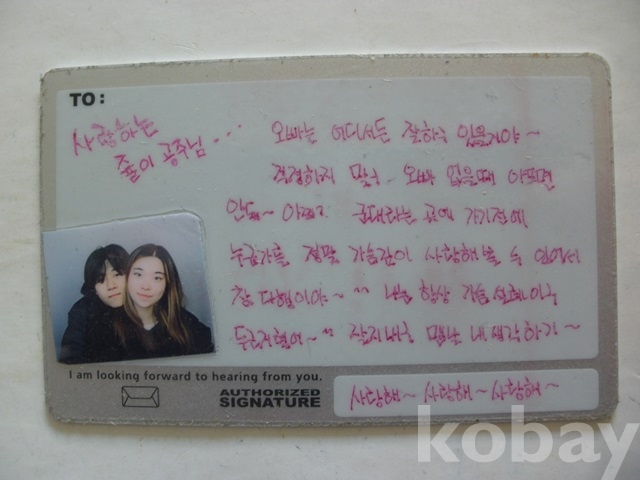 TO:
사랑하는
쭐이 공주님...
오빠는 어디서든 잘하구 있을거야~
걱정하지 말구 오빠 없을때 아프면
안돼~ 아찌 군대라는 곳에 가기전에
누군가를 정말 가슴깊이 사랑해볼 수 있어서
참 다행이야~^^ 나는 항상 가슴
잘지내구 맨날 내생각하기~
I am looking forward to hearing from you.
AUTHORIZED
SIGNATURE
사랑해~ 사랑해~ 사랑해~
kobay